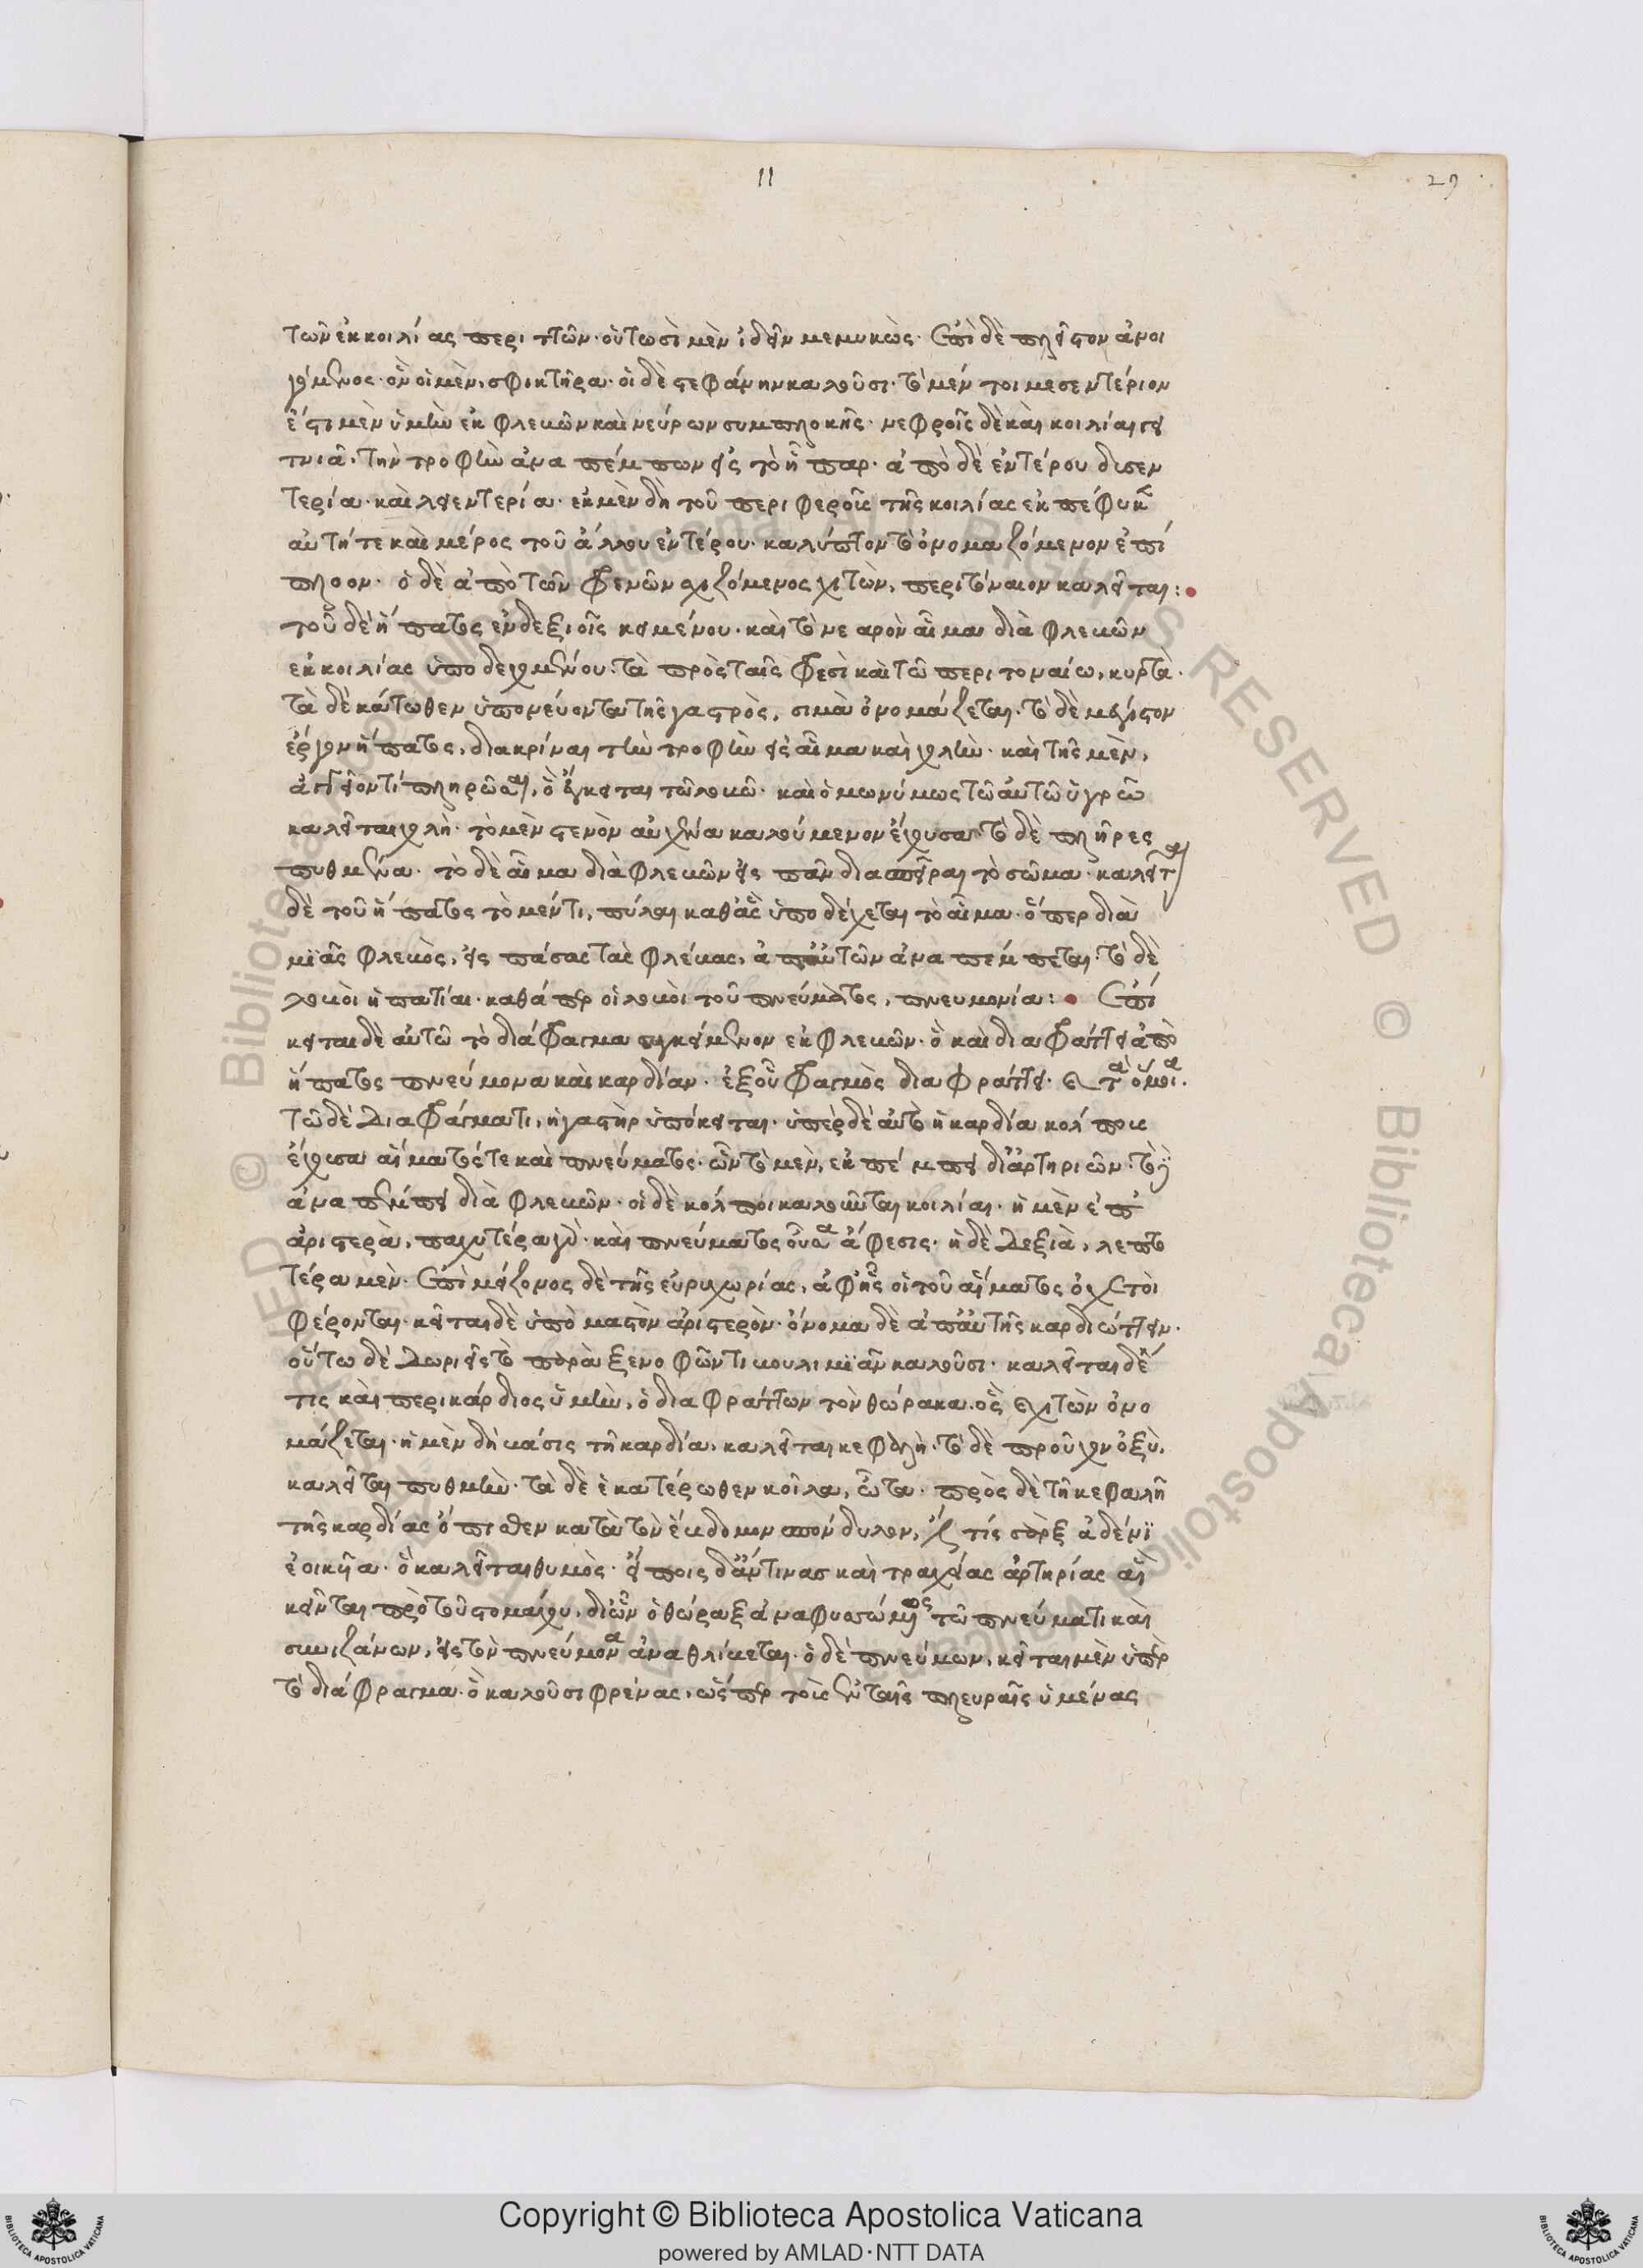 11
29
τῶν ἐκ κοιλίας περιττῶν· οὑτωσὶ μὲν ἰδεῖν μεμυκὼς· ἐπὶ δὲ πλεῖστον ἀνοι
γόμενος· ὃν οἱ μὲν, σφιγκτῆρα· οἱ δὲ στεφάνην καλοῦσι· τὸ μέντοι μεσεντέριον
ἔστι μὲν ὑμὴν ἐκ φλεβῶν καὶ νεύρων συμπλοκῆς· νεφροῖς δὲ καὶ κοιλίαι γει
τνιᾶ· τὴν τροφὴν ἀναπέμπων εἰς τὸ ἧπαρ· ἀπὸ δὲ ἐντέρου δισεν
τερία· καὶ λειεντερία· ἐκ μὲν δὴ τοῦ περιφεροῦς τῆς κοιλίας ἐκπέφυκε
αὐτήτε καὶ μέρος τοῦ ἄλλου ἐντέρου· καλύπτον τὸ ὀνομαζόμενον ἐπί
πλοον· ὁ δὲ ἀπὸ τῶν φρενῶν σχιζόμενος χιτὼν, περιτόναιον καλεῖται:
τοῦ δὲ ἥπατος ἐν δεξιοῖς κειμένου· καὶ τὸ νεαρὸν αἷμα διὰ φλεβῶν
ἐκ κοιλίας ὑποδεχομένου· τὰ πρὸς ταῖς φρεσὶ καὶ τῶ περιτοναίω, κυρτὰ·
τὰ δὲ κάτωθεν ὑπονεύοντα τῆς γαστρὸς, σιμὰ ὀνομάζεται· τὸ δὲ μέγιστον
ἔργον ἥπατος, διακρίναι τὴν τροφὴν εἰς αἷμα καὶ χολὴν· καὶ τῆς μὲν,
ἀγγεῖόν τι πληρῶσαι, ὃ ἔγκειται τῶ λοβῶ· καὶ ὁμωνύμως τῶ αὐτῶ ὑγρῶ
καλεῖται χολὴ· τὸ μὲν στενὸν αὐχένα καλούμενον ἔχουσα· τὸ δὲ πλῆρες
πυθμένα· τὸ δὲ αἷμα διὰ φλεβῶν εἰς πᾶν διασπεῖραι τὸ σῶμα· καλεῖται
δὲ τοῦ ἥπατος τὸ μέν τι, πύλαι καθἃς ὑποδέχεται τὸ αἷμα· ὅπερ διὰ
μιᾶς φλεβὸς, εἰς πάσας τὰς φλέβας, ἀπαὐτῶν ἀναπέμπεται· τὸ δὲ
λοβοὶ ἡπατίαι· καθάπερ οἱ λοβοὶ τοῦ πνεύματος, πνευμονία: ἐπί
κειται δὲ αὐτῶ τὸ διάφραγμα συγκείμενον ἐκ φλεβῶν· ὃ καὶ διαφράττει ἀπὸ
ἥπατος πνεύμονα καὶ καρδίαν· ἐξοῦ φραγμὸς διαφράττει·
τῶ δὲ διαφράγματι, ἡ γαστὴρ ὑπόκειται· ὑπὲρ δὲ αὐτὸ ἡ καρδία κόλπους
ἔχουσα αἵματός τε καὶ πνεύματος· ὧν τὸ μὲν, ἐκπέμπει διἀρτηριῶν· τὸ δὲ
ἀναπέμπει διὰ φλεβῶν· οἱ δὲ κόλποι καλοῦνται κοιλίαι· ἡ μὲν ἐπ
ἀριστερὰ, παχυτέρα γὰρ· καὶ πνεύματος οὖσα ἄφεσις· ἡ δὲ δεξιὰ, λεπτο
τέρα μὲν· ἐπὶ μείζονος δὲ τῆς εὐρυχωρίας, ἀφἧς οἱ τοῦ αἵματος ὀχετοὶ
φέρονται· κεῖται δὲ ὑπὸ μαστὸν ἀριστερὸν· ὄνομα δὲ ἀπαὐτῆς καρδιώττειν·
οὕτω δὲ Δωριεῖς τὸ παρὰ ξενοφῶντι βουλιμιᾶν καλοῦσι· καλεῖται δὲ
τις καὶ περικάρδιος ὑμὴν, ὁ διαφράττων τὸν θώρακα· ὃς χιτὼν ὀνο
μάζεται· ἡ μὲν δὴ βάσις τῆ καρδία, καλεῖται κεφαλὴ· τὸ δὲ προῦχον ὀξὺ,
καλεῖται πυθμὴν· τὰ δὲ ἑκατέρωθεν κοῖλα, ὦτα· πρὸς δὲ τῆ κεφαλῆ
τῆς καρδίας ὄπισθεν κατὰ τὸν ἕβδομον σπόνδυλον, ἔστι τίς σὰρξ ἀδένϊ
ἐοικυῖα· ὃ καλεῖται θυμὸς· εἴποις δἄν τινας καὶ τραχείας ἀρτηρίας αἳ
κεῖνται πρὸ τοῦ στομάχου, διὧν ὁ θώραξ ἀναφυσώμενος τῶ πνεύματι καὶ
συνιζάνων, εἰς τὸν πνεύμονα ἀναθλίβεται· ὁ δὲ πνεύμων, κεῖται μὲν ὑπὲρ
τὸ διάφραγμα· ὃ καλοῦσι φρένας, ὥσπερ τοὺς ἐν ταῖς πλευραῖς ὑμένας
Copyright © Biblioteca Apostolica Vaticana
powered by AMLAD·NTT DATA